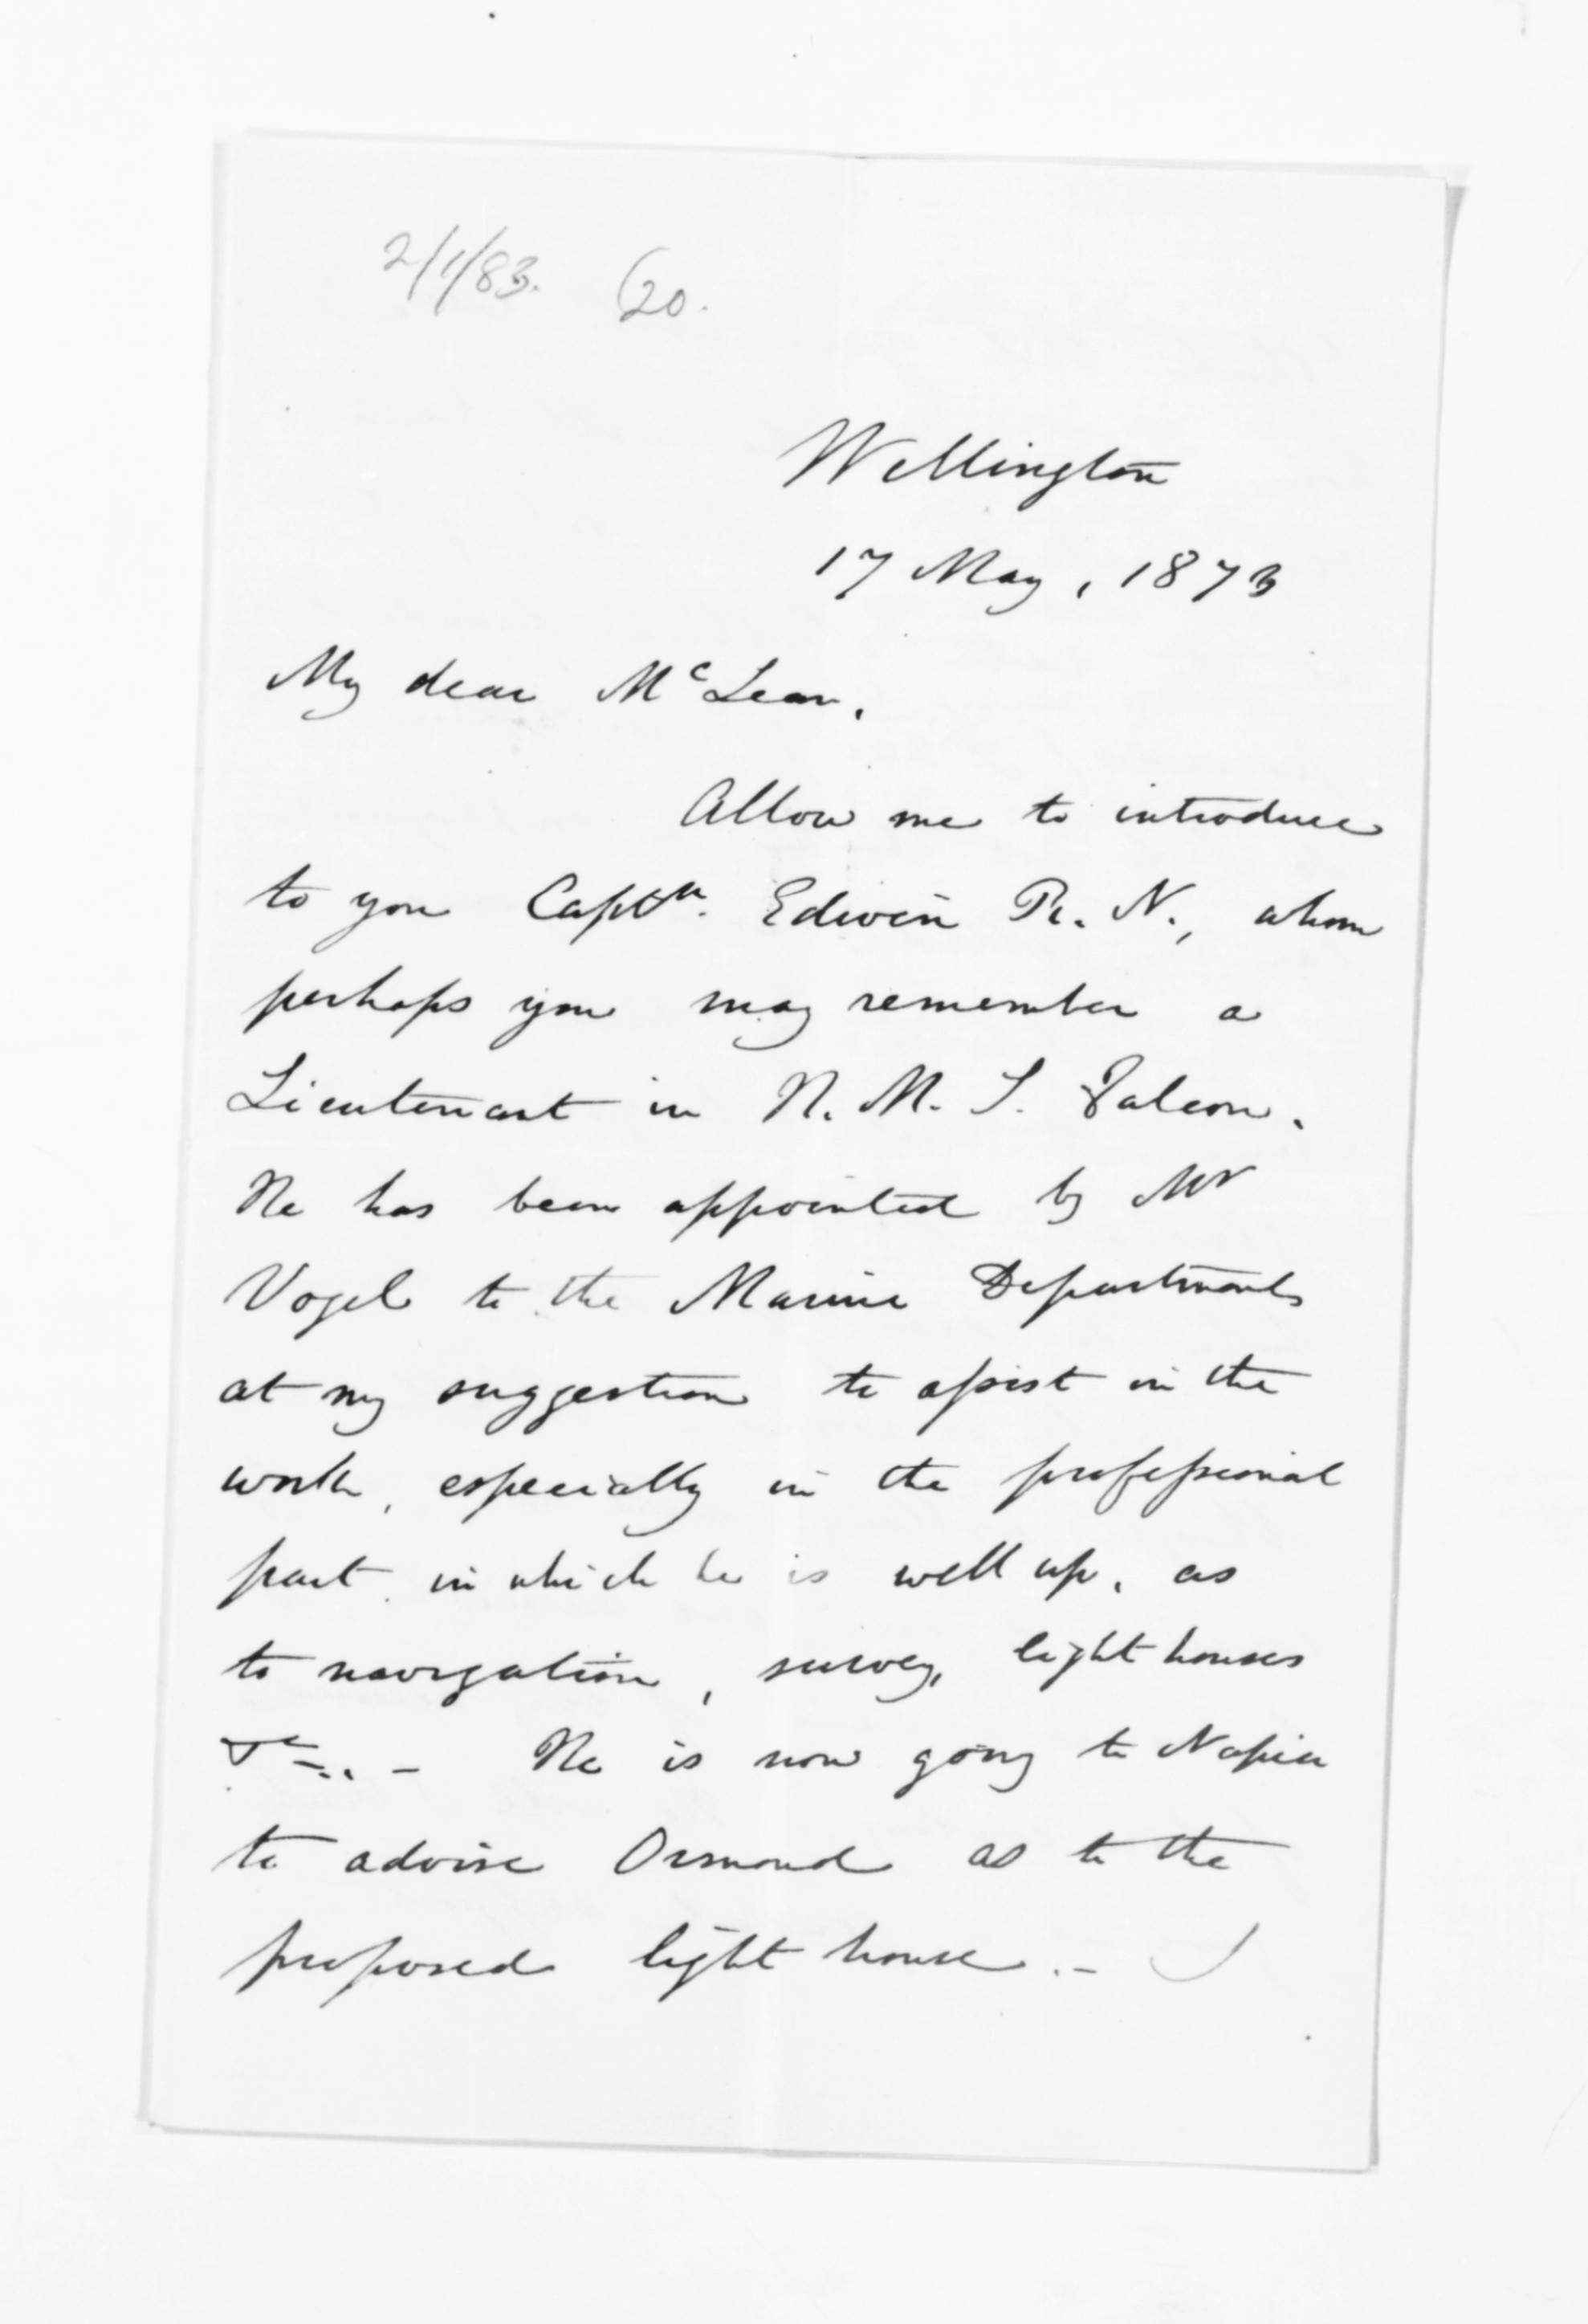 2/1/83. (20.
Wellington
17 May, 1873
My dear McLean,
Allow me to introduce
to you Captn. Edwin R. N., whom
perhaps you may remember a
Lieutenant in H. M. S. Falcon.
He has been appointed by Mr
Vogel to the Marine Department
at my suggestion to assist in the
work, especially in the professional
part in which he is well up, as
to navigation, survey, light houses
&c. - He is now going to Napier
to advise Ormond as to the
proposed light house. -